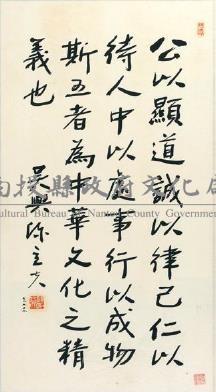 公以顯道誠以律己仁以
待人中以處事行以成物
斯五者為中華文化之精
義也
吳興陳立夫
南投縣政府文化局
Cultural Bureau of Nantou County Government